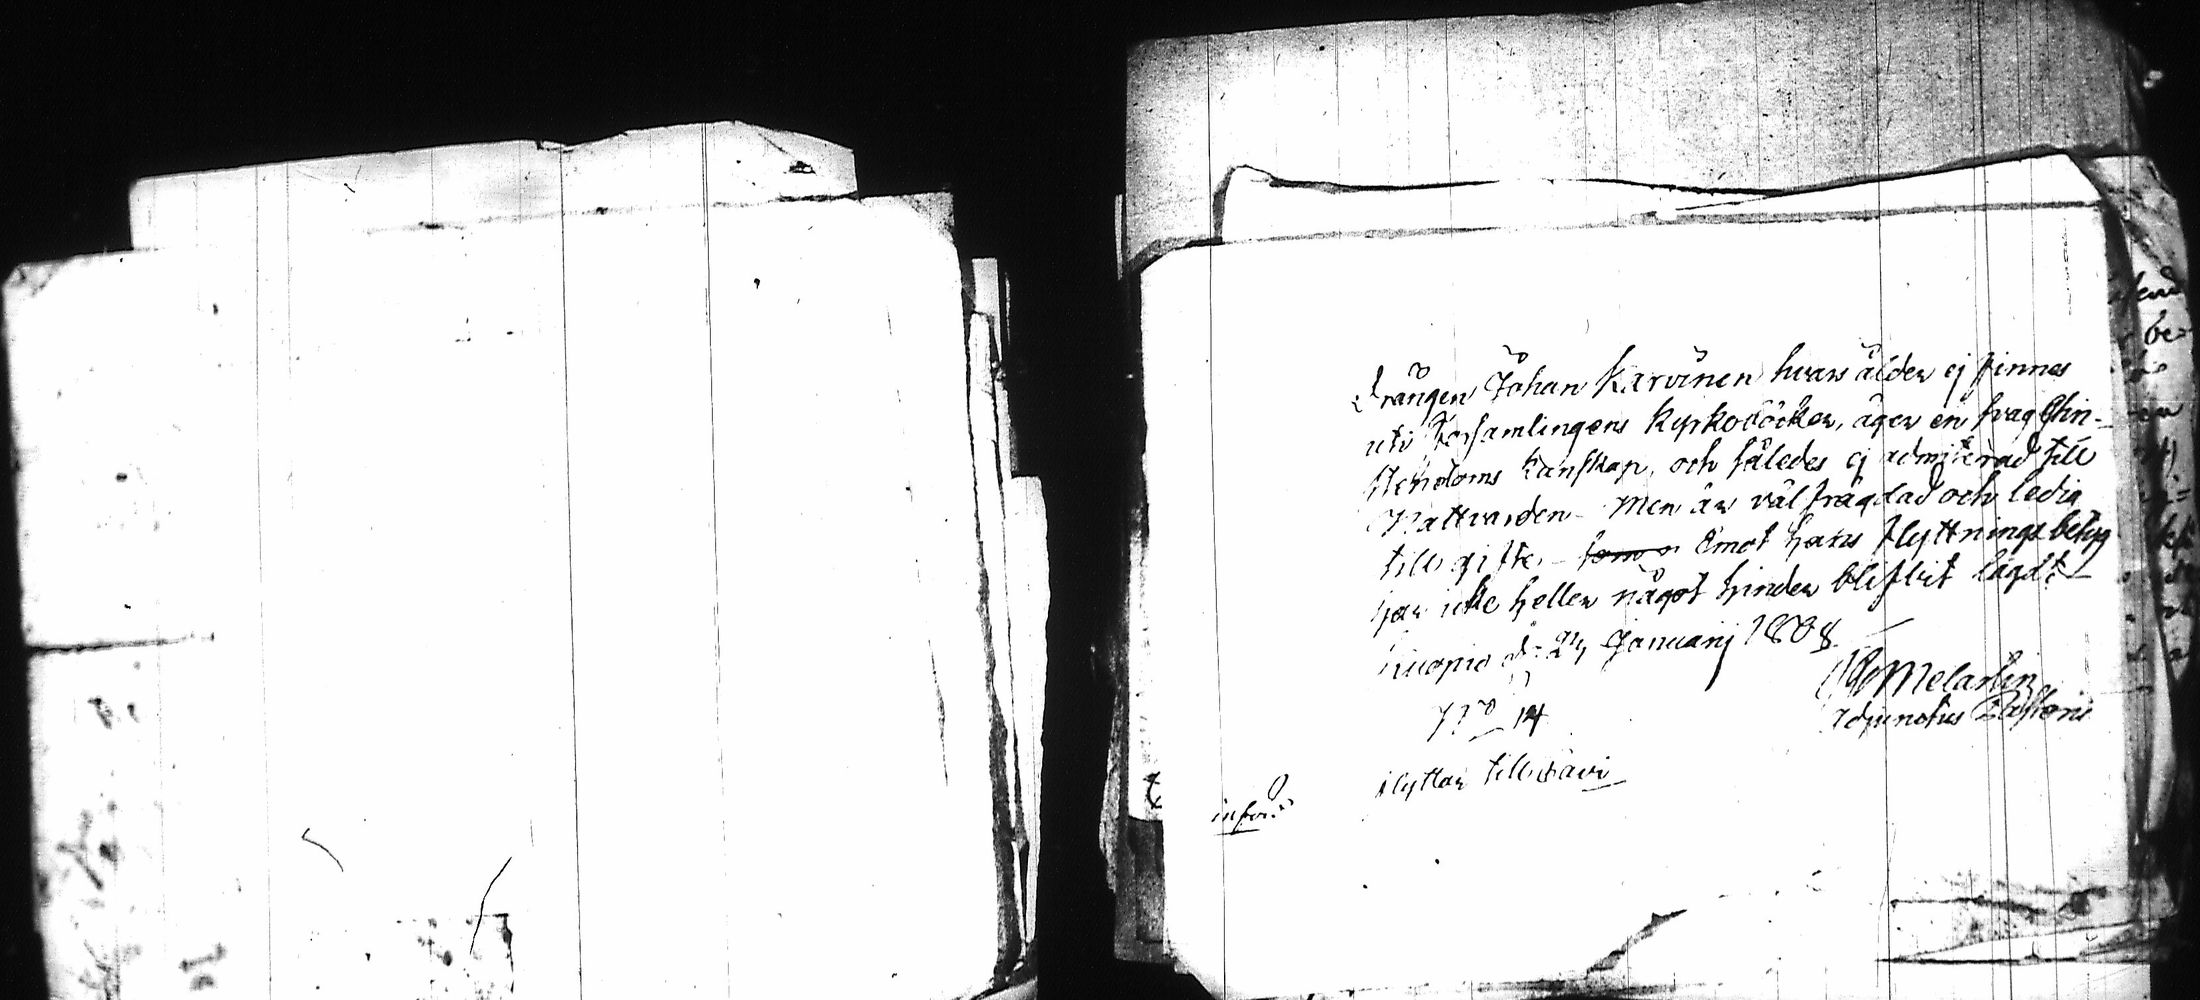 Drängen Johan Karvinen hvars ålder ej finnes
uti Församlingens Kyrkoböcker, äger en svag Chri-
stendoms kunskap, och således ej admitterad till
Nattvarden - Men är väl frägdad och ledig
till gifte, - Emot hans flyttnings betyg
har icke heller något hinder blifvit lagdt
Kuopio d: 24 Januarij 1808
Melartin
Adjunctus Pastoris
N:o 14
flyttar till
införd